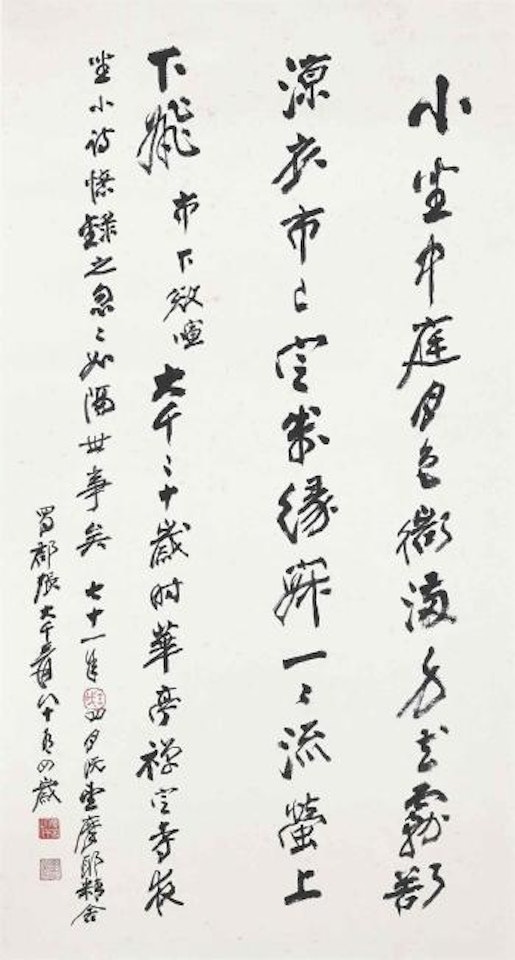 小坐中庭月色微滿身花霧
涼衣市已定萬緣寂一一流螢上
下飛 市下脫喧 大千二十歲時華亭禪定寺夜
坐小詩憶錄之忽忽如隔世事矣 七十一年四月既望摩耶精舍
蜀郡張大千爰八十有四歲